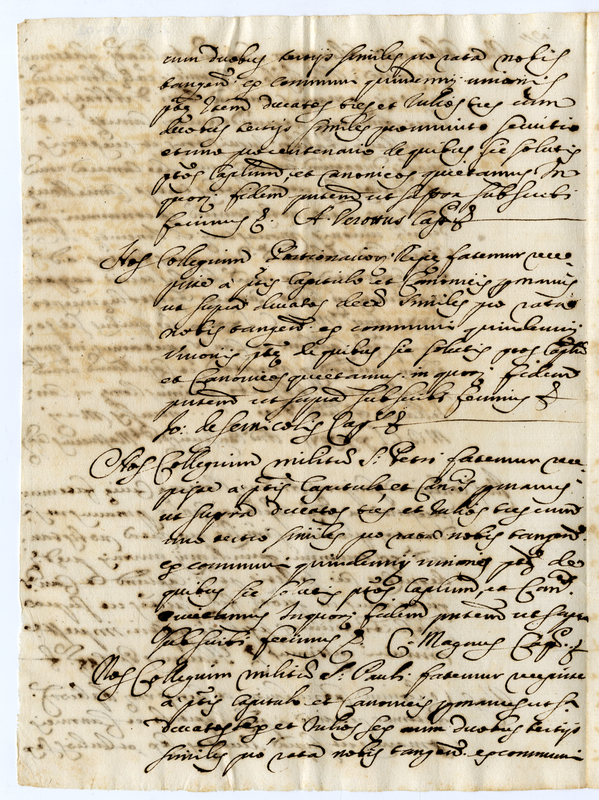 cum duobus tertijs similes pro rata nobis
tangen. ex communi quindennij unionis
ptę. Item ducatos tres et Julios tres cum
duobus tertijs similes pro minuto servitio
et uno pro centenario de quibus sic solutis
ptos Captum, et Canonicos quietamus. In
quor. fidem pntem ut supra subscribi
fecimus &. A. Verottus Caps &
Nos Collegium Portionarior. Ripę fatemur rece-
pisse à ptis Capitulo et Canonicis pmanus
ut supra ducatos decem similes pro rata
nobis tangen. ex communi quindennij
Unionis ptę. de quibus sic solutis ptos Captum
et Canonicos quietamus. in quor. fidem
pntem ut supra subscribi fecimus &
Jo: de Sernicolis Caps &
Nos Collegium militum S. Petri fatemur rece-
pisse à ptis Capitulo et Cancis pmanus
ut supra ducatos tres et Julios tres cum
uno tertio similes pro rata nobis tangen.
ex communi quindennij unionis ptę. de
quibus sic solutis ptos Captum, et Can.
quietamus. In quor. fidem pntem ut supra
subscribi fecimus &. C. Magnus Caps. &
Nos Collegium militum S. Pauli fatemur recepisse
à ptis Capitulo et Canonicis pmanus ut sa.
ducatos sex et Julios sex cum duobus tertijs
similes pro rata nobis tangen. ex communi